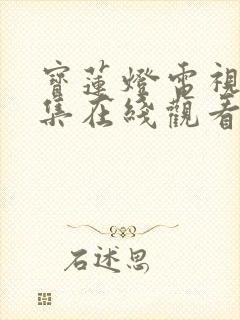 寶蓮燈電視
集在綫觀看
石述思